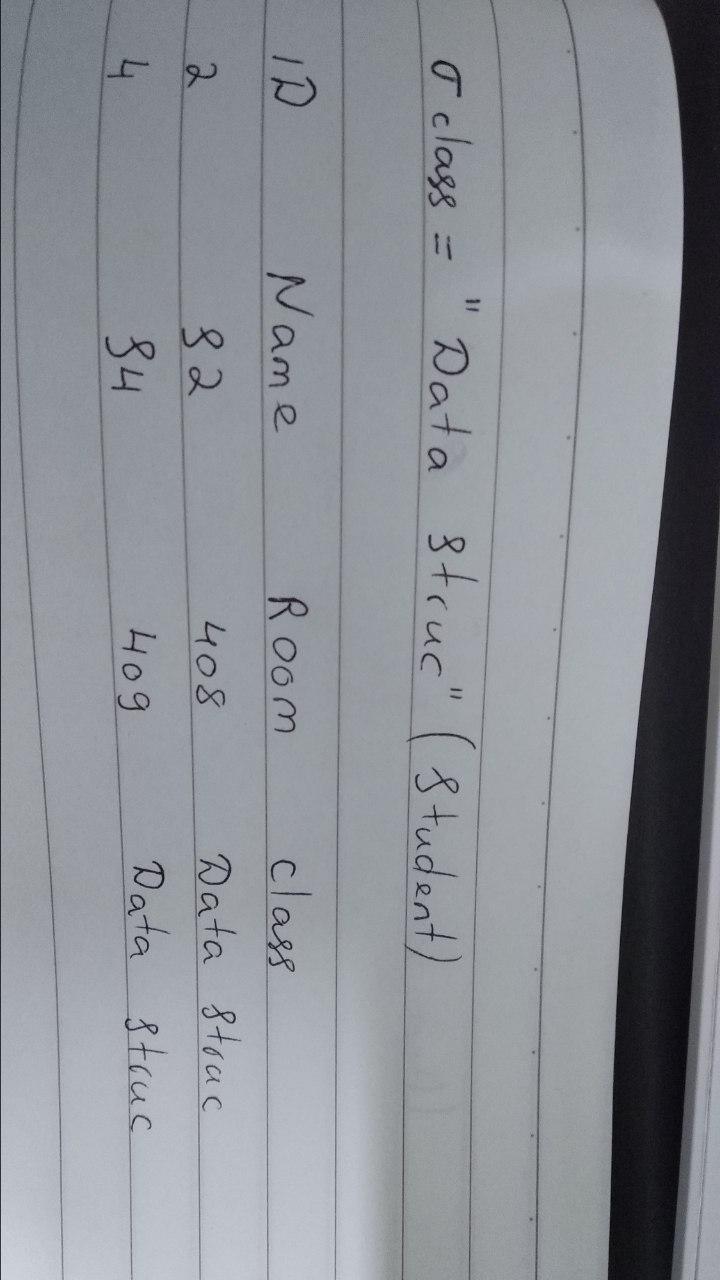 σ class = "Data struc" (student)
ID Name Room class
2 S2 408 Data struc
4 S4 409 Data struc